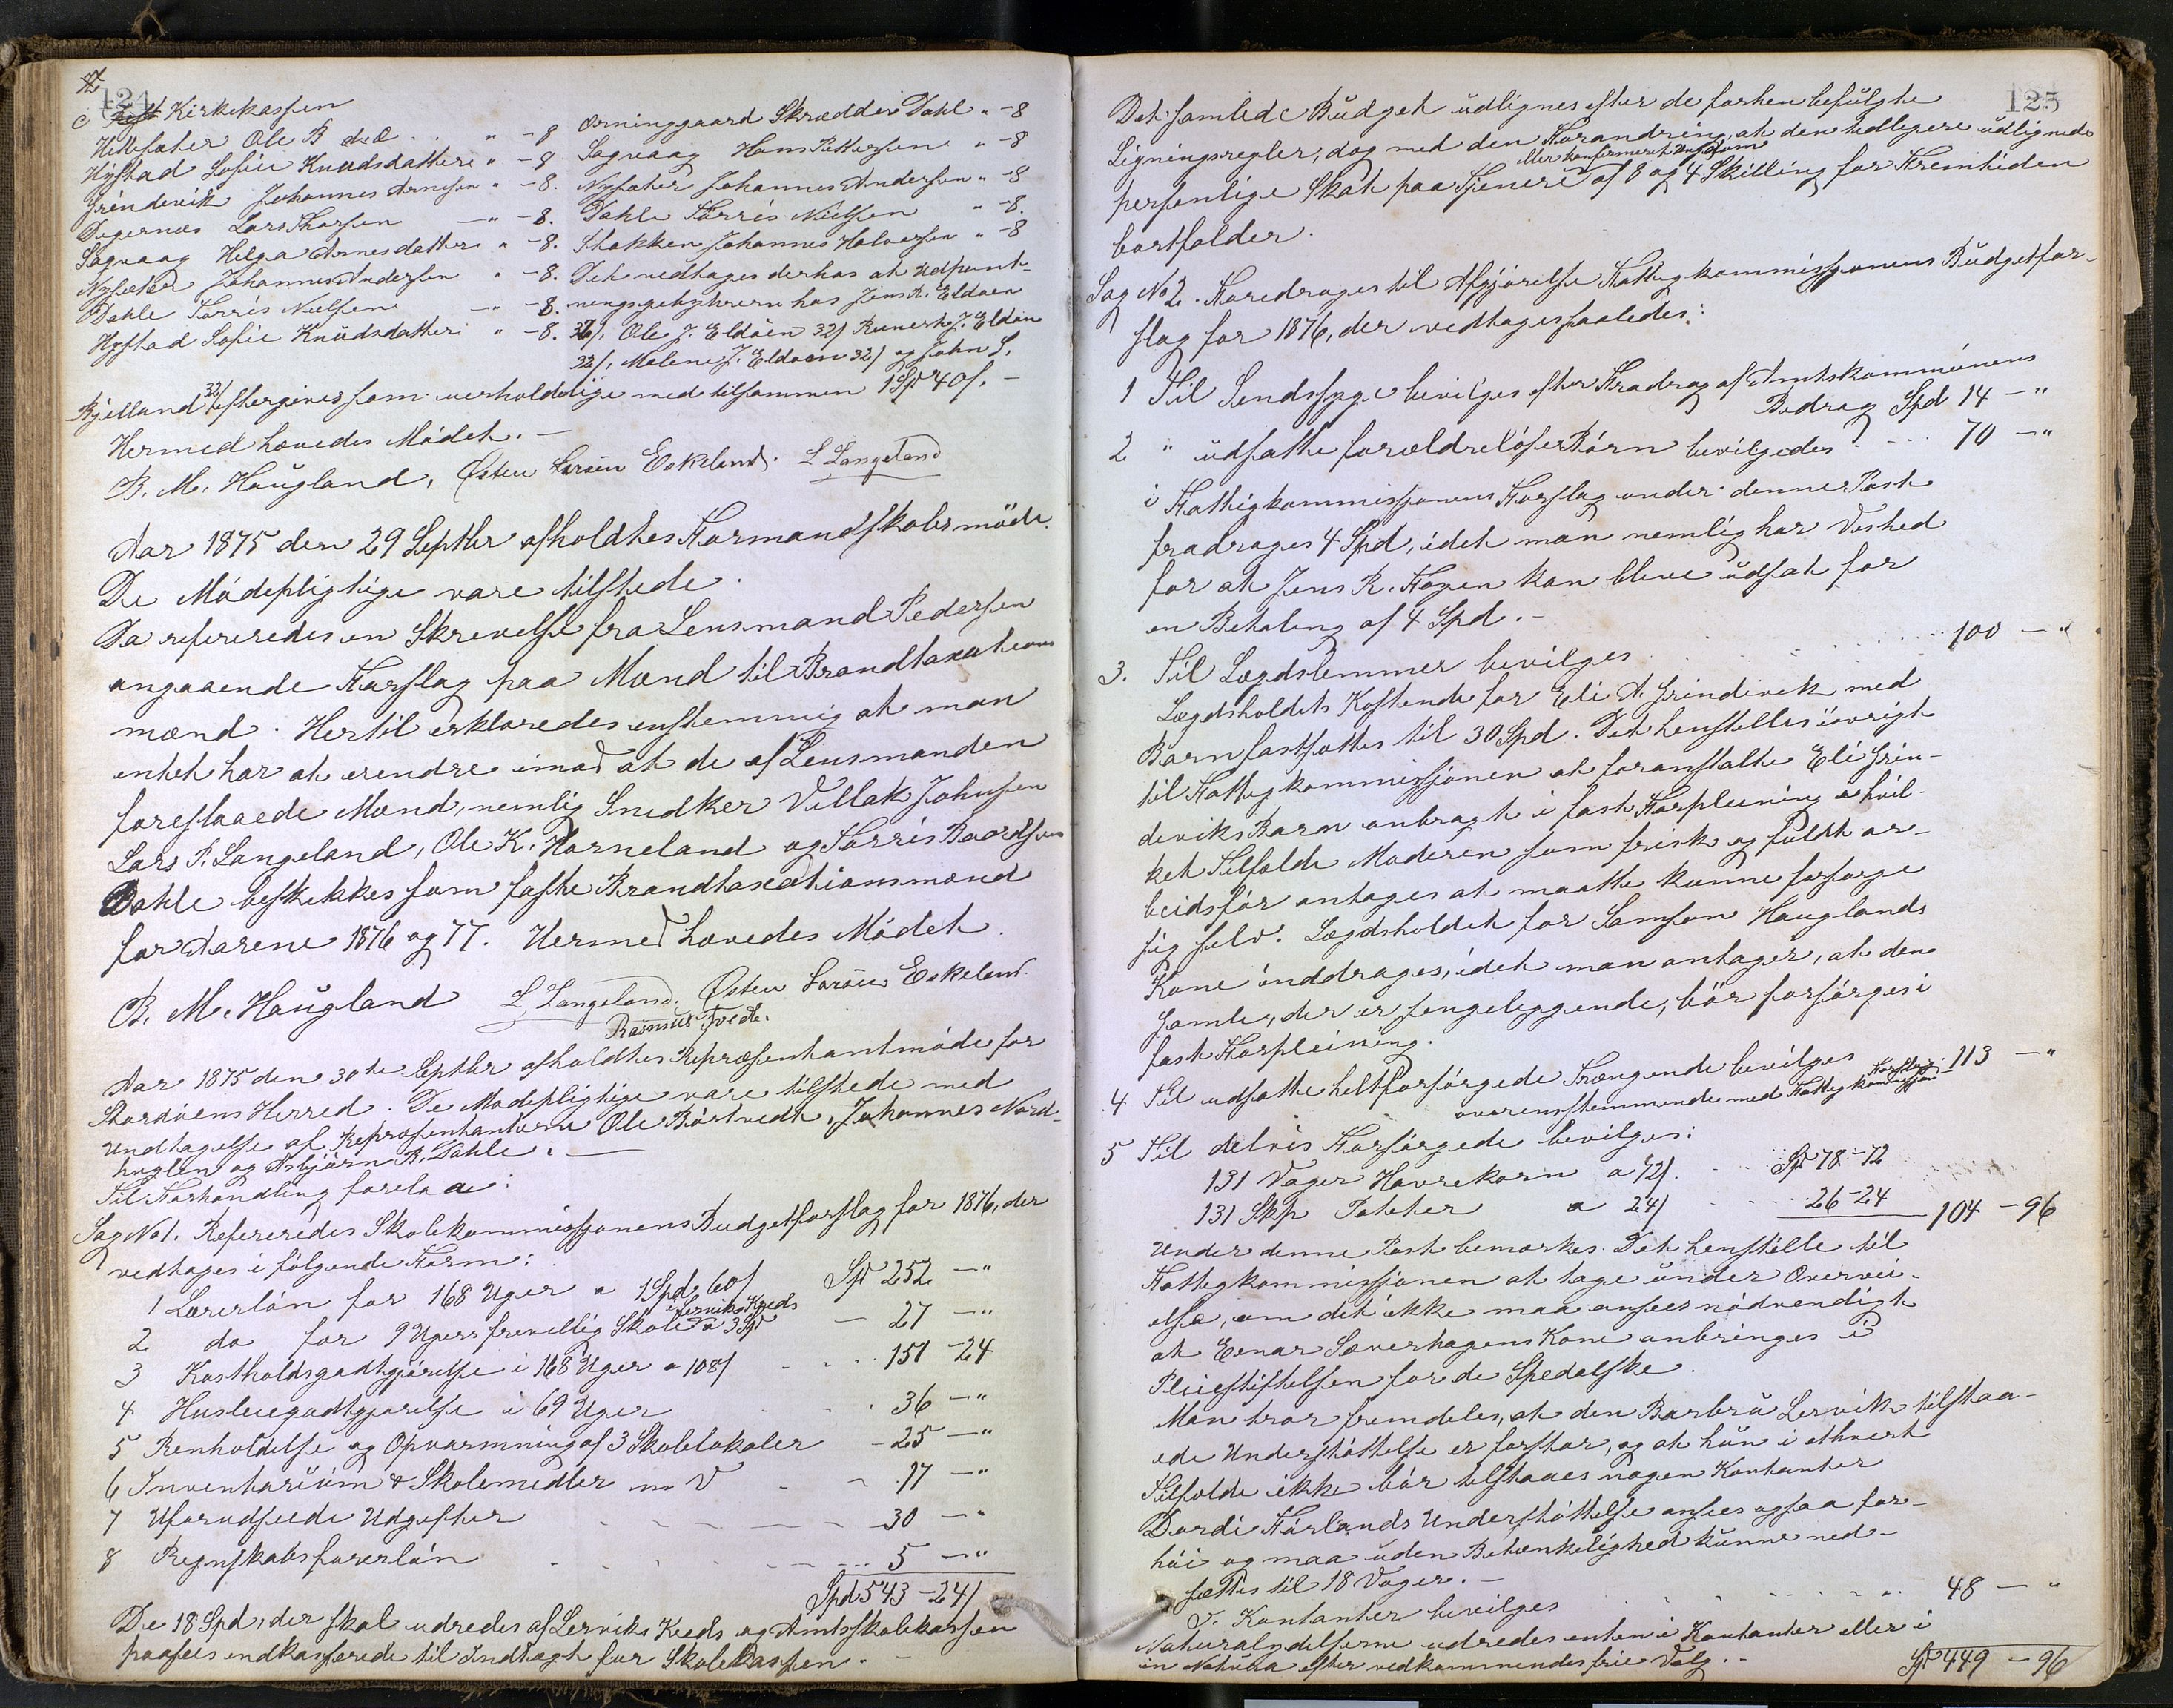 124
c Kirkekassen
Hillesæter Ole B " -8 Orninggaard Skrædder Dahl " -8
Hystad Sofie Knudsdatter " -8 Sagvaag Hans Pettersen " -8
Grindevik Johannes Arnesen " -8. Nysæter Johannes Andersen " -8
Digernæs Lars Thorsen " -8. Dahle Torris Nielsen " -8.
Sagvaag Helga Arnesdatter " -8. Stokken Johannes Halvorsen " -8
Nysæter Johannes Andersen " -8. Det vedtages derhos at Udpant-
Dahle Torris Nielsen " -8. ningsgebyhrerne hos Jens R. Eldøen
Hystad Sofie Knudsdatter " -8. 32/, Ole J. Eldøen 32/ Runert J. Eldøen
32/, Malene J. Eldøen 32/ og John S.
Bjelland 32/ eftergives som uerholdelige med tilsammen 1 Spd 40/. -
Hermed hævedes Mødet. -
B. M. Haugland, Østen Larsen Eskeland. L Langeland
Aar 1875 den 29 Septbr afholdtes Formandskabsmøde.
De Mødepligtige vare tilstede.
Da refereredes en Skrivelse fra Lensmand Pedersen
angaaende Forslag paa Mænd til Brandtaxations
mænd. Hertil erklæredes enstemmig at man
intet har at erindre imod at de af Lensmanden
foreslaaede Mænd, nemlig Snedker Villak Johnsen
Lars P. Langeland, Ole K. Horneland og Torris Baardsen
Dahle beskikkes som faste Brandtaxationsmænd
for Aarene 1876 og 77. Hermed hævedes Mødet.
B. M. Haugland L Langeland. Østen Larsen Eskeland.
Rasmus Tvedt.
Aar 1875 den 30te Septbr afholdtes Repræsentantmøde for
Stordøens Herred. De Mødepligtige vare tilstede med
Undtagelse af Repræsentanterne Ole Børtvedt, Johannes Nord-
huglen og Asbjørn B. Dahle. -
Til Forhandling forelaa:
Sag No 1. Refereredes Skolekommissjonens Budgetforslag for 1876, der
vedtages i følgende Form:
1 Lærerløn for 168 Uger a 1 Spd 60/ Spd 252 - "
2 do for 9 Ugers frivillig Skole i Lerviks Kreds a 3 Spd - 27 - "
3 Kostholdsgodtgjørelse i 168 Uger a 108/ 151 - 24
4 Husleiegodtgjørelse i 69 Uger 36 - "
5 Renholdelse og Opvarmning af 3 Skolelokaler - 25 - "
6 Inventarium & Skolemidler m V - 17 - "
7 Uforudseede Udgifter 30 - "
8 Regnskabsførerløn 5 - "
Spd 543 - 24/
De 18 Spd, der skal udredes af Lerviks Kreds og Amtsskolekassen
paasees indkasserede til Indtægt for Skolekassen. -
125
Det samlede Budget udlignes efter de forhen befulgte
Ligningsregler, dog med den Forandring, at den tidligere udlignede
personlige Skat paa Tjenere eller konfirmeret Ungdom af 8 og 4 Skilling for Fremtiden
bortfalder.
Sag No 2. Foredrages til Afgjørelse Fattigkommissjonens Budgetfor-
slag for 1876, der vedtages saaledes:
1 Til Sindssyge bevilges efter Fradrag af Amtskommunens
Bidrag Spd 14 - "
2 " udsatte forældreløse Børn bevilgedes 70 - "
i Fattigkommissjonens Forslag under denne Post
fradrages 4 Spd, idet man nemlig har Vished
for at Jens R. Høyen kan blive udsat for
en Betaling af 4 Spd. -
3. Til Lægdslemmer bevilges 100 - "
Lægdsholdets Kostende for Eli A. Grindevik med
Barn fastsættes til 30 Spd. Det henstilles iøvrigt
til Fattigkommissjonen at foranstalte Eli Grin-
deviks Barn anbragt i fast Forpleining i hvil-
ket Tilfælde Moderen som frisk og fuldt ar-
beidsfør antages at maatte kunne forsørge
sig selv. Lægdsholdet for Samson Hauglands
Kone inddrages, idet man antager, at den
Gamle, der er sengeliggende, bør forsørges i
fast Forpleining.
4 Til udsatte heltforsørgede Trængende bevilges 113 - "
overensstemmende med Fattigkommissjons Forslag
5 Til delvis Forsørgede bevilges:
131 Voger Havrekorn a 72/. Spd 78 - 72
131 Skp Poteter a 24/ 26 - 24 104 - 96
Under denne Post bemærkes. Det henstilles til
Fattigkommissjonen at tage under Overvei-
else, om det ikke maa ansees nødvendigt
at Einar Sæverhagens Kone anbringes i
Pleiestiftelsen for de Spedalske.
Man tror fremdeles, at den Barbra Lervik tilstaa-
ede Understøttelse er forstor, og at hun i ethvert
Tilfælde ikke bør tilstaaes nogen Kontanter
Dordi Førlands Understøttelse ansees ogsaa for-
høi og maa uden Betænkelighed kunne ned-
sættes til 18 Voger. -
Kontanter bevilges 48 - "
Naturalydelserne udredes enten i Kontanter eller i
in Natura efter vedkommendes frie Valg. - Spd 449 - 96